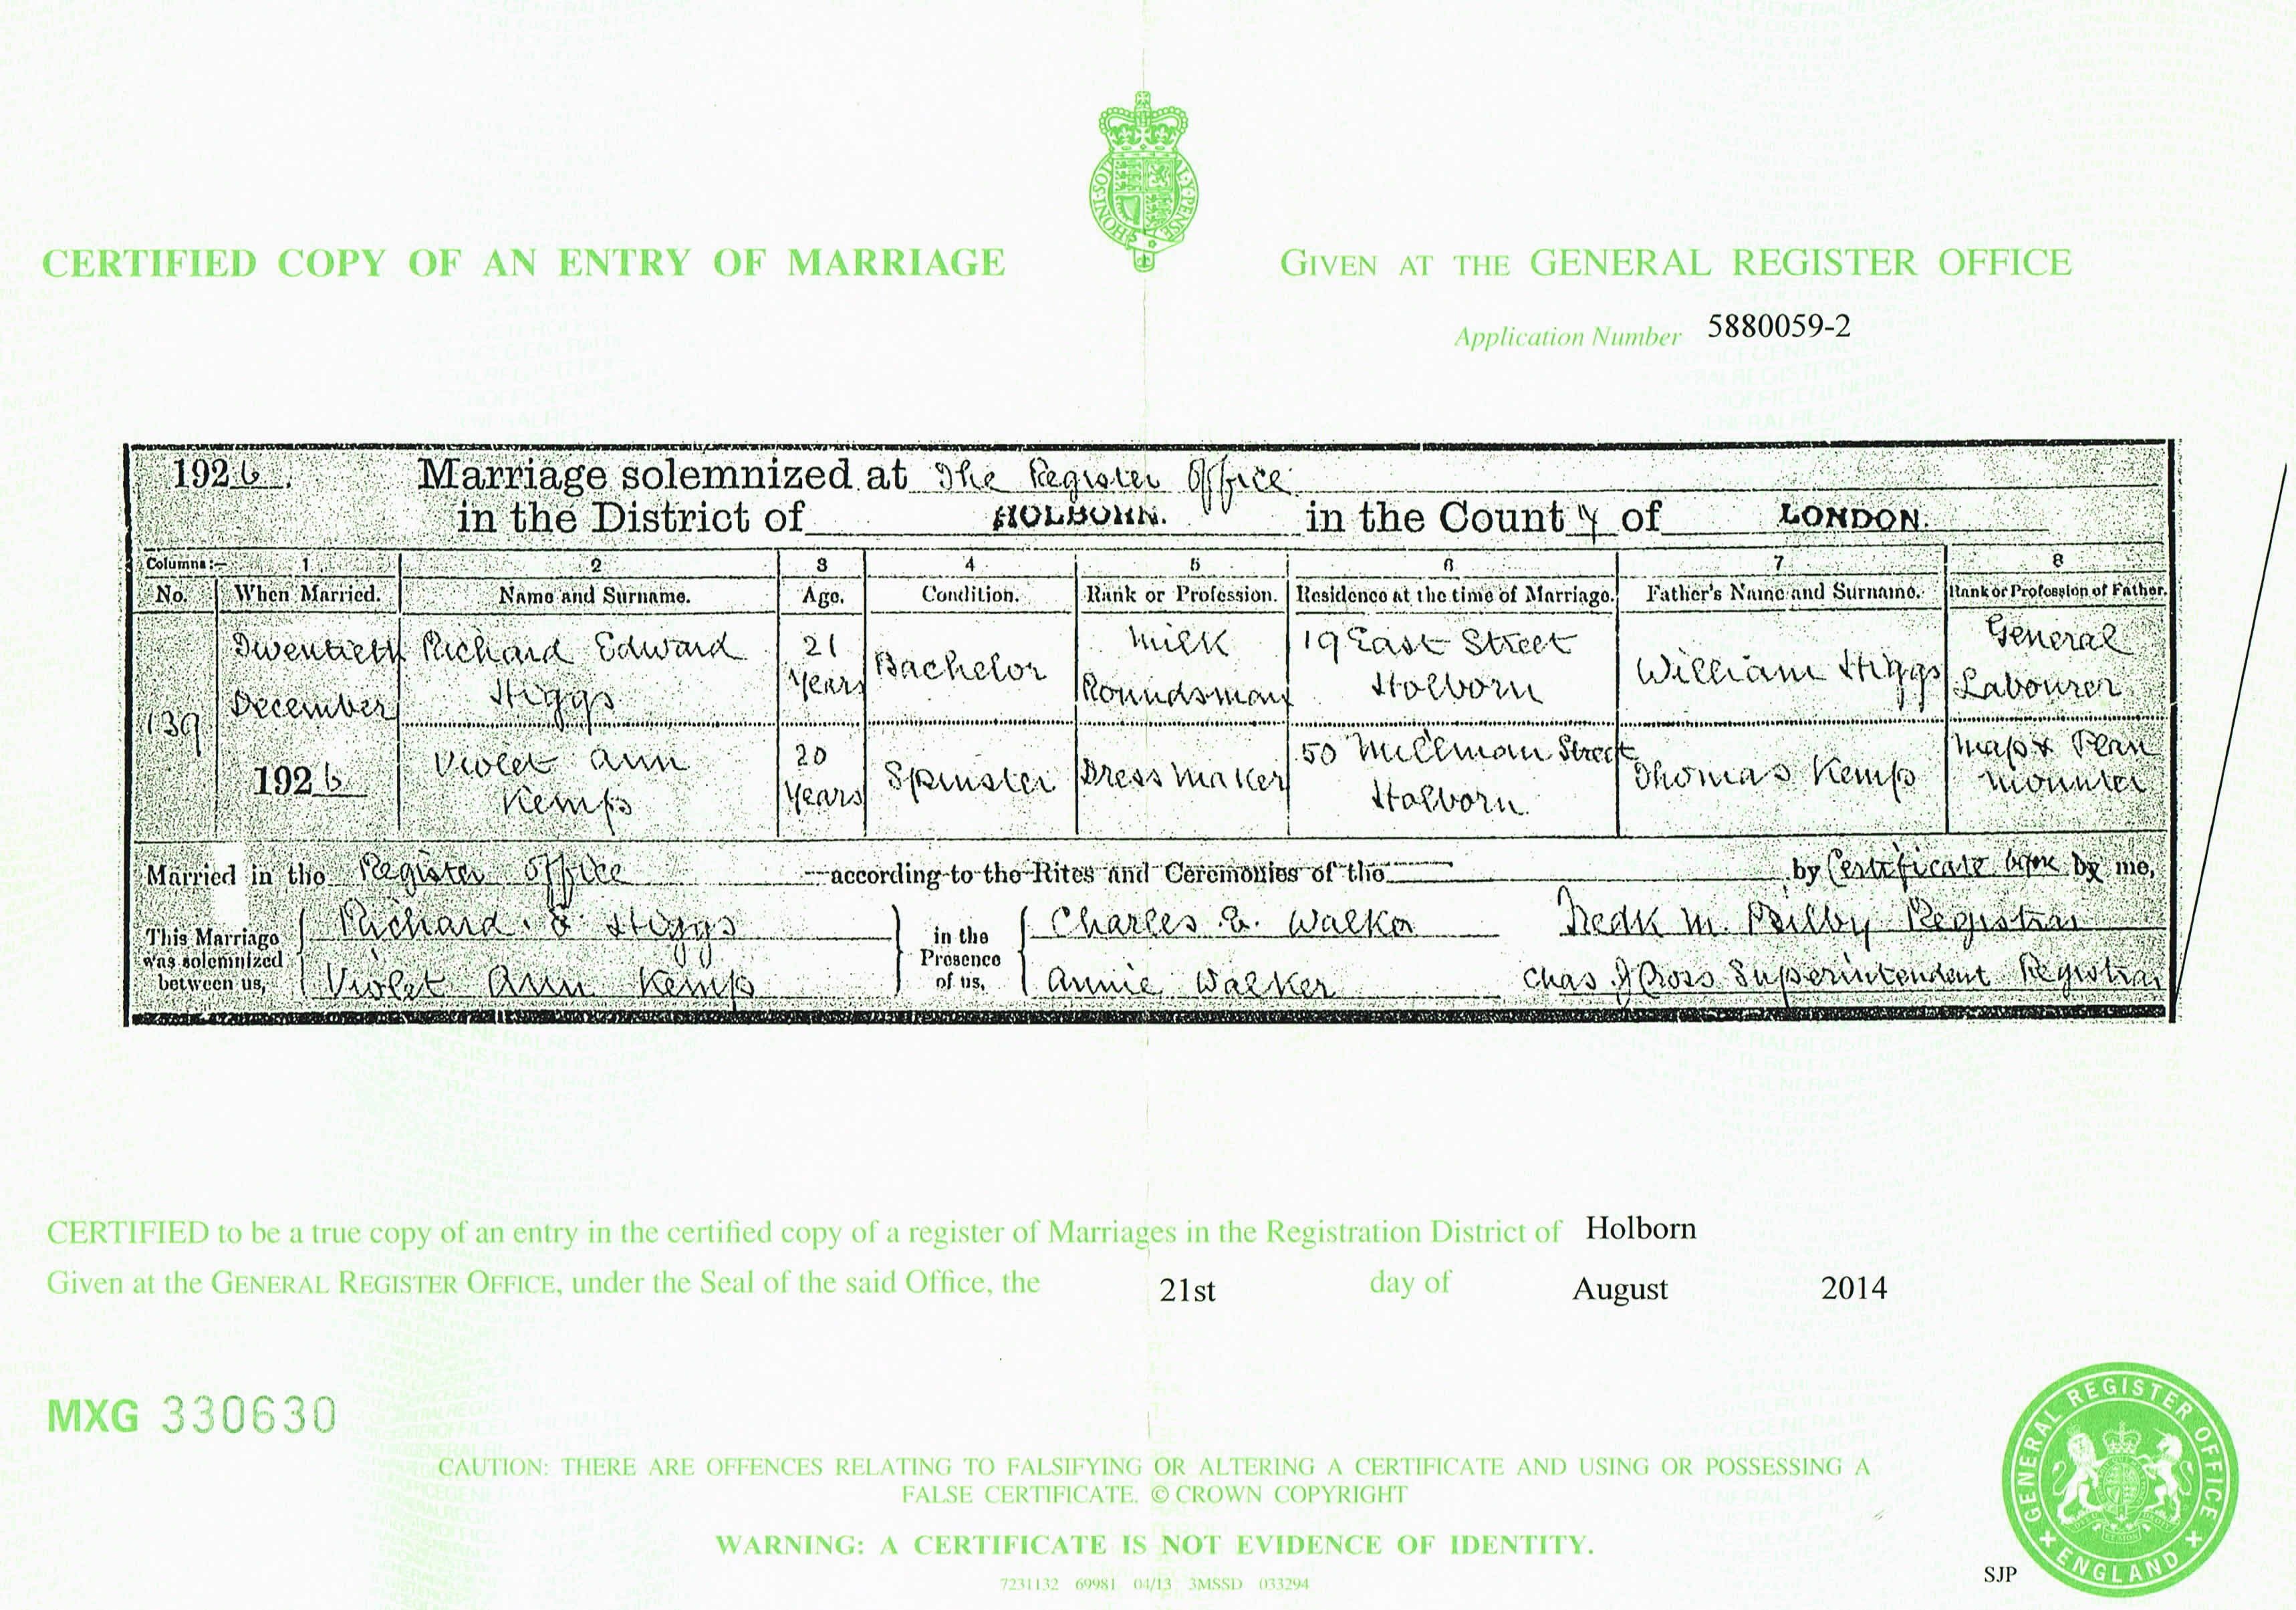 HONI·SOIT
AL·Y·PENSE
CERTIFIED COPY OF AN ENTRY OF MARRIAGE
GIVEN AT THE GENERAL REGISTER OFFICE
Application Number 5880059-2
1926. Marriage solemnized at The Register Office
in the District of HOLBORN. in the County of LONDON.
Columns:— 1 2 3 4 5 6 7 8
No. When Married. Name and Surname. Age. Condition. Rank or Profession. Residence at the time of Marriage. Father's Name and Surname. Rank or Profession of Father.
139 Twentieth December 1926
Richard Edward Higgs 21 Years Bachelor Milk Roundsman 19 East Street Holborn William Higgs General Labourer
Violet Ann Kemp 20 Years Spinster Dressmaker 50 Millman Street Holborn. Thomas Kemp Map & Plan Mounter
Married in the Register Office according to the Rites and Ceremonies of the by Certificate before by me,
This Marriage was solemnized between us, Richard. E. Higgs
Violet Ann Kemp
in the Presence of us, Charles E. Walker
Annie Walker
Fredk M. Registrar
Chas J Cross Superintendent Registrar
CERTIFIED to be a true copy of an entry in the certified copy of a register of Marriages in the Registration District of Holborn
Given at the GENERAL REGISTER OFFICE, under the Seal of the said Office, the 21st day of August 2014
MXG 330630
CAUTION: THERE ARE OFFENCES RELATING TO FALSIFYING OR ALTERING A CERTIFICATE AND USING OR POSSESSING A
FALSE CERTIFICATE. © CROWN COPYRIGHT
WARNING: A CERTIFICATE IS NOT EVIDENCE OF IDENTITY.
7231132 69981 04/13 3MSSD 033294
SJP
GENERAL REGISTER OFFICE
ENGLAND